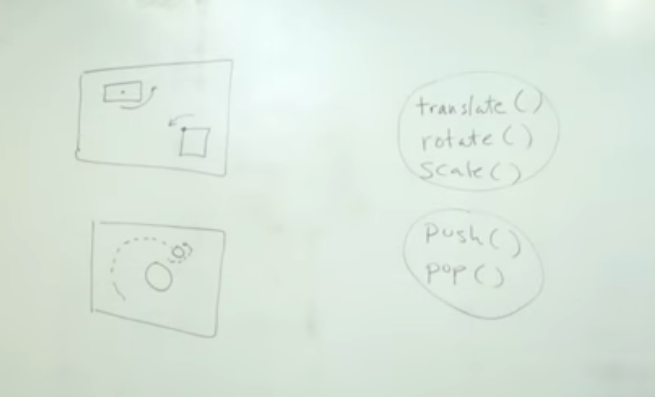 translate()
rotate()
scale()
push()
pop()